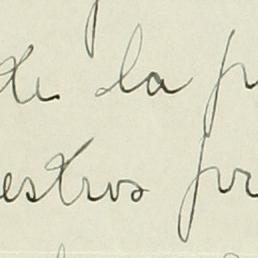 de la p
estros pr